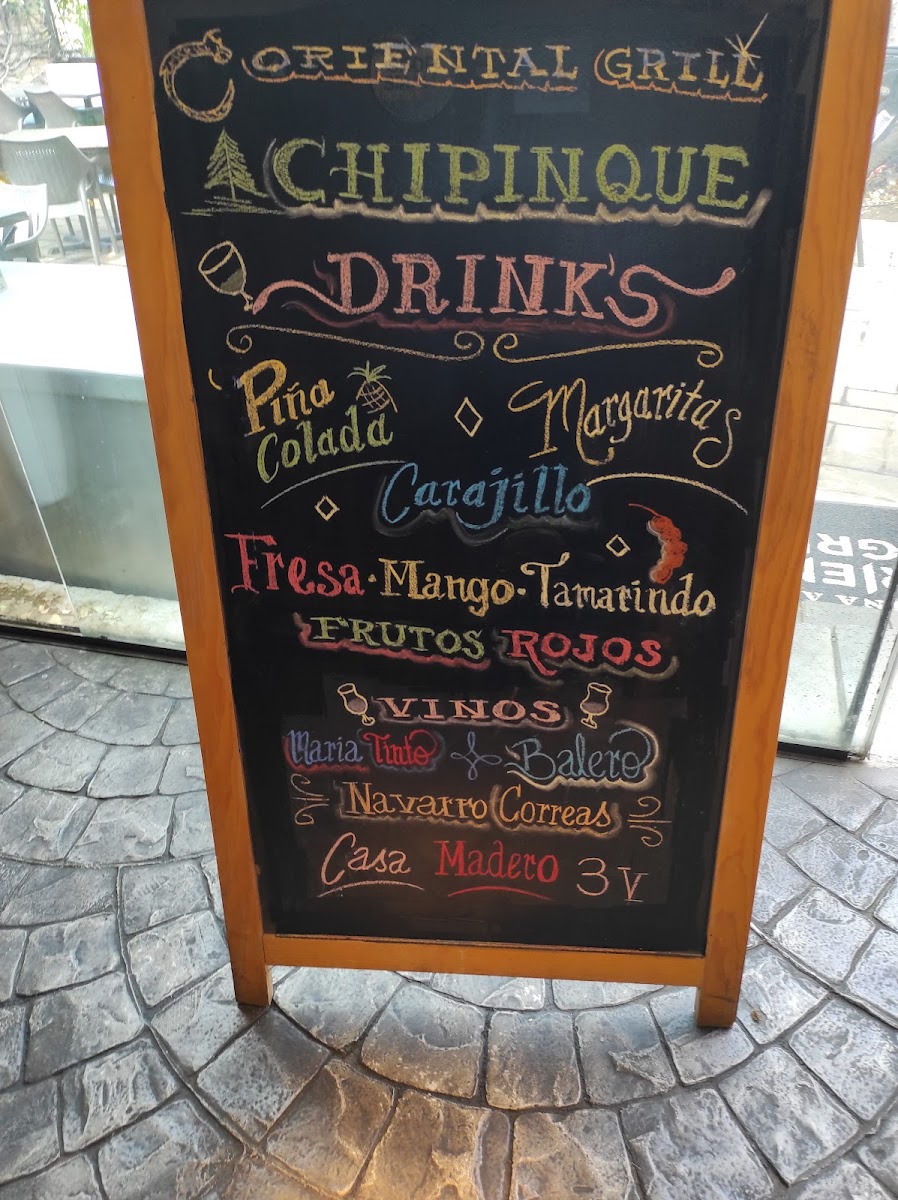 ORIENTAL GRILL
CHIPINQUE
DRINK'S
Piña Colada
Margaritas
Carajillo
Fresa · Mango · Tamarindo
FRUTOS ROJOS
VINOS
Maria Tinto Balero
Navarro Correas
Casa Madero 3V